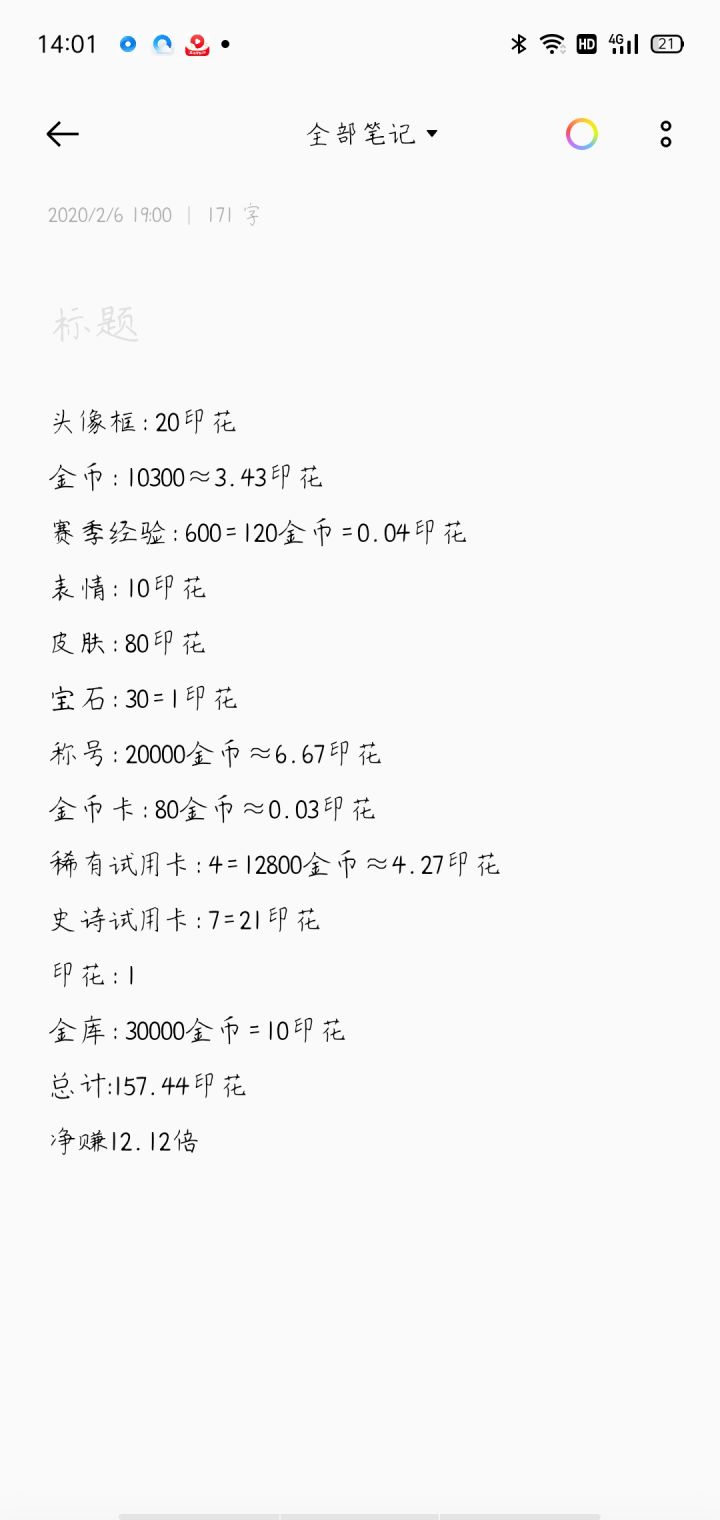 14:01
HD 4G 21
全部笔记
2020/2/6 19:00 | 171 字
标题
头像框:20印花
金币:10300≈3.43印花
赛季经验:600=120金币=0.04印花
表情:10印花
皮肤:80印花
宝石:30=1印花
称号:20000金币≈6.67印花
金币卡:80金币≈0.03印花
稀有试用卡:4=12800金币≈4.27印花
史诗试用卡:7=21印花
印花:1
金库:30000金币=10印花
总计:157.44印花
净赚12.12倍